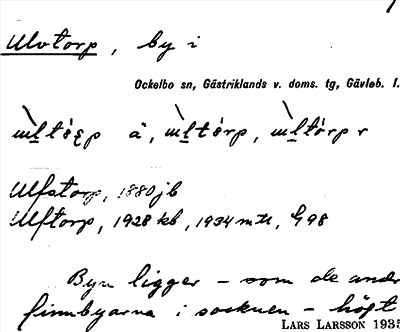 Ulvtorp, by i
Ockelbo sn, Gästriklands v. doms. tg, Gävleb. l.
å,
Ulfstorp, 1880 jb
Ulftorp, 1928 kb, 1934 mtl, G 98
Byn ligger – som de andr
finnbyarna i socknen – högt
LARS LARSSON 1935